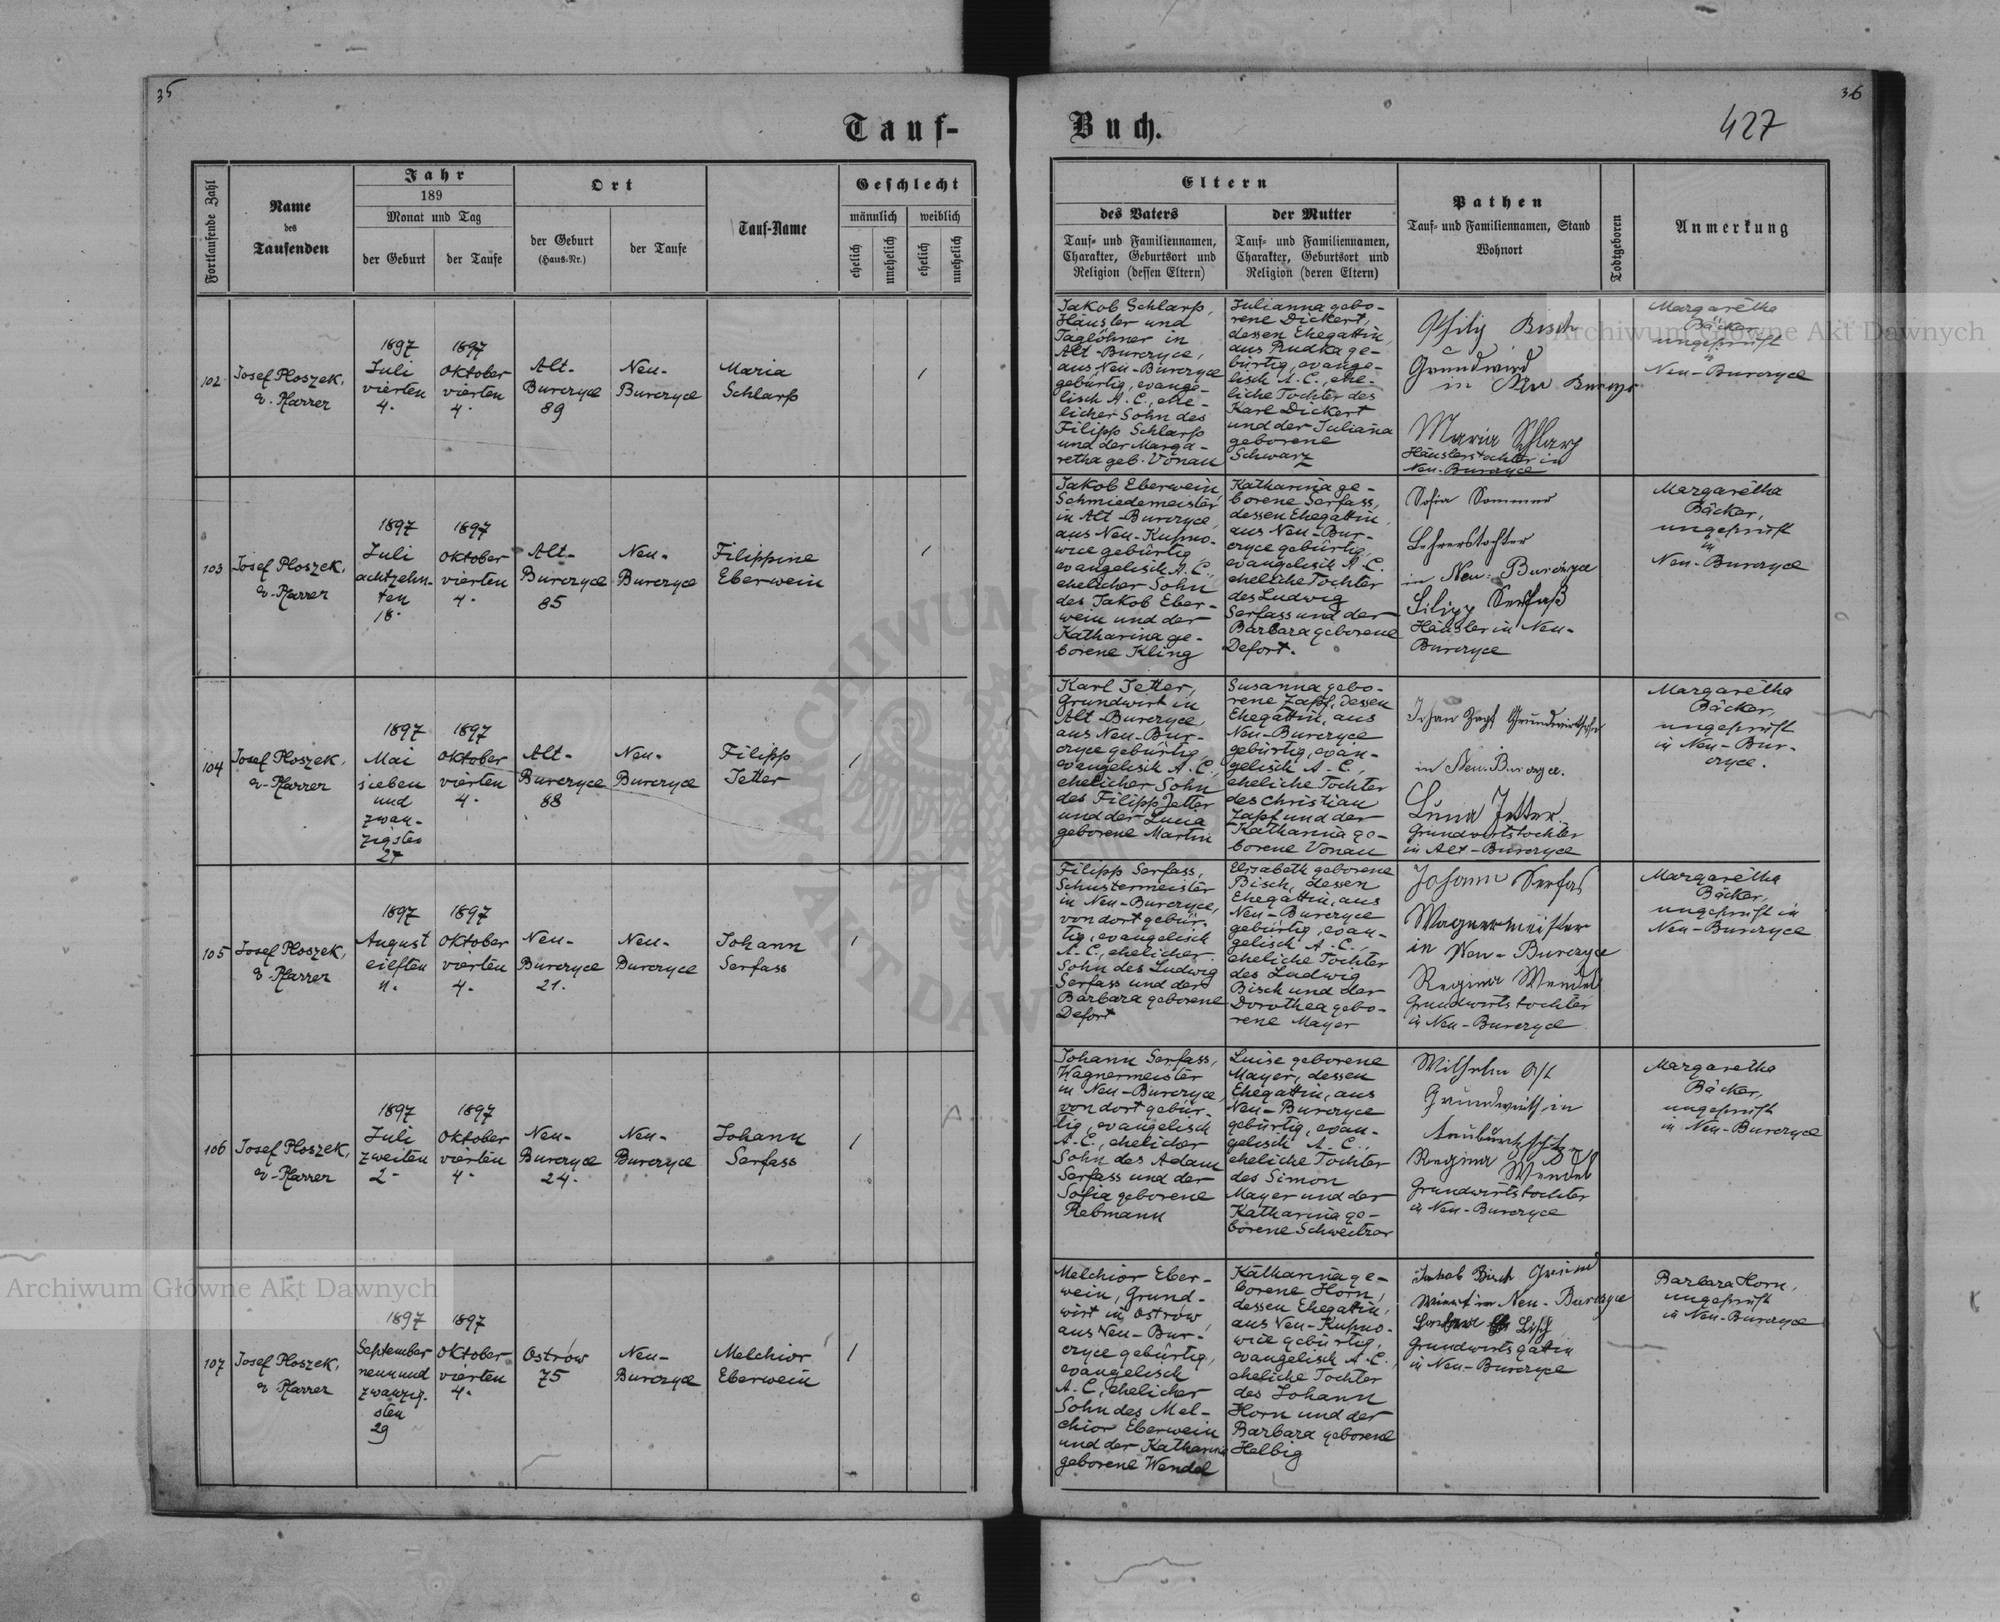 35
36
427
Tauf-
Buch.
Fortlaufende Zahl
Name
des
Taufenden
Jahr
189
Monat und Tag
der Geburt
der Taufe
Ort
der Geburt
(Haus-Nr.)
der Taufe
Tauf-Name
Geschlecht
männlich
weiblich
ehelich
unehelich
ehelich
unehelich
Eltern
des Vaters
Tauf- und Familiennamen,
Charakter, Geburtsort und
Religion (dessen Eltern)
der Mutter
Tauf- und Familiennamen,
Charakter, Geburtsort und
Religion (deren Eltern)
Pathen
Tauf- und Familiennamen, Stand
Wohnort
Todtgeboren
Anmerkung
102
Josef Ploszek,
ev. Pfarrer
1897
Juli
vierten
4.
1897
Oktober
vierten
4.
Alt-
Burczyce
89
Neu-
Burczyce
Maria
Schlarp
Jakob Schlarp,
Häusler und
Taglöhner in
Alt-Burczyce,
aus Neu-Burczyce
gebürtig, evange-
lisch A. C., ehe-
licher Sohn des
Filipp Schlarp
und der Marga-
retha geb. Vonau
Julianna gebo-
rene Dickert,
dessen Ehegattin,
aus Rudka ge-
bürtig, evange-
lisch A. C., ehe-
liche Tochter des
Karl Dickert
und der Juliana
geborene
Schwarz
Philip Bisch
Grundwird
in Neu Burczyce
Maria Schlarp
Häuslerstochter in
Neu-Burczyce
Margarétha
Bäcker,
ungeprüft
in
Neu-Burczyce
103
Josef Ploszek,
ev. Pfarrer
1897
Juli
achtzehn-
ten
18.
1897
Oktober
vierten
4.
Alt-
Burczyce
85
Neu-
Burczyce
Filippine
Eberwein
Jakob Eberwein,
Schmiedemeister
in Alt-Burczyce,
aus Neu-Kupno-
wice gebürtig,
evangelisch A. C.,
ehelicher Sohn
des Jakob Eber-
wein und der
Katharina ge-
borene Kling
Katharina ge-
borene Serfass,
dessen Ehegattin,
aus Neu-Bur-
czyce gebürtig,
evangelisch A. C.
eheliche Tochter
des Ludwig
Serfass und der
Barbara geborene
Defort.
Sofia Sommer
Lehrerstochter
in Neu-Burczyce
Filipp Serfaß
Häusler in Neu-
Burczyce
Margarétha
Bäcker,
ungeprüft
in
Neu-Burczyce
104
Josef Ploszek,
ev. Pfarrer
1897
Mai
sieben
und
zwan-
zigsten
27
1897
Oktober
vierten
4.
Alt-
Burczyce
88
Neu-
Burczyce
Filipp
Jetter
Karl Jetter,
Grundwirt in
Alt-Burczyce,
aus Neu-Bur-
czyce gebürtig,
evangelisch A. C.,
ehelicher Sohn
des Filipp Jetter
und der Lucia
geborene Martin
Susanna gebo-
rene Zapf, dessen
Ehegattin, aus
Neu-Burczyce
gebürtig, evan-
gelisch A. C.,
eheliche Tochter
des Christian
Zapf und der
Katharina ge-
borene Vonau
in Neu-Burczyce.
Jetter
Grundwirtstochter
in Alt-Burczyce
Margarétha
Bäcker,
ungeprüft
in Neu-Bur-
czyce.
105
Josef Ploszek,
ev. Pfarrer
1897
August
eilften
11.
1897
Oktober
vierten
4.
Neu-
Burczyce
21.
Neu-
Burczyce
Johann
Serfass
Filipp Serfass,
Schustermeister
in Neu-Burczyce,
von dort gebür-
tig, evangelisch
A. C., ehelicher
Sohn des Ludwig
Serfass und der
Barbara geborene
Defort
Elisabeth geborene
Bisch, dessen
Ehegattin, aus
Neu-Burczyce
gebürtig, evan-
gelisch A. C.,
eheliche Tochter
des Ludwig
Bisch und der
Dorothea gebo-
rene Mayer
Johann Serfas
Wagnermeister
in Neu-Burczyce
Regina Wendel
Grundwirtstochter
in Neu-Burczyce
Margarétha
Bäcker,
ungeprüft in
Neu-Burczyce
106
Josef Ploszek,
ev. Pfarrer
1897
Juli
zweiten
2.
1897
Oktober
vierten
4.
Neu-
Burczyce
24.
Neu-
Burczyce
Johann
Serfass
Johann Serfass,
Wagnermeister
in Neu-Burczyce,
von dort gebür-
tig, evangelisch
A. C., ehelicher
Sohn des Adam
Serfass und der
Sofia geborene
Rebmann
Luise geborene
Mayer, dessen
Ehegattin, aus
Neu-Burczyce
gebürtig, evan-
gelisch A. C.,
eheliche Tochter
des Simon
Mayer und der
Katharina ge-
borene Schweitzer
Wilhelm Ost
Grundwirth in
Regina Wendel
Grundwirtstochter
in Neu-Burczyce
Margaretha
Bäcker,
ungeprüft
in Neu-Burczyce
107
Josef Ploszek,
ev. Pfarrer
1897
September
neunund
zwanzig-
sten
29
1897
Oktober
vierten
4.
Ostrów
75
Neu-
Burczyce
Melchior
Eberwein
Melchior Eber-
wein, Grund-
wirt in Ostrów
aus Neu-Bur-
czyce gebürtig,
evangelisch
A. C., ehelicher
Sohn des Mel-
chior Eberwein
und der Katharina
geborene Wendel
Katharina ge-
borene Horn,
dessen Ehegattin,
aus Neu-Kupno-
wice gebürtig,
evangelisch A. C.,
eheliche Tochter
des Johann
Horn und der
Barbara geborene
Helbig
Jakob Bisch Grund
Wirt in Neu-Burczyce
Grundwirtsgatin
in Neu-Burczyce
Barbara Horn,
ungeprüft
in Neu-Burczyce
Archiwum Główne Akt Dawnych
Archiwum Główne Akt Dawnych
ARCHIWUM
AKT DAW